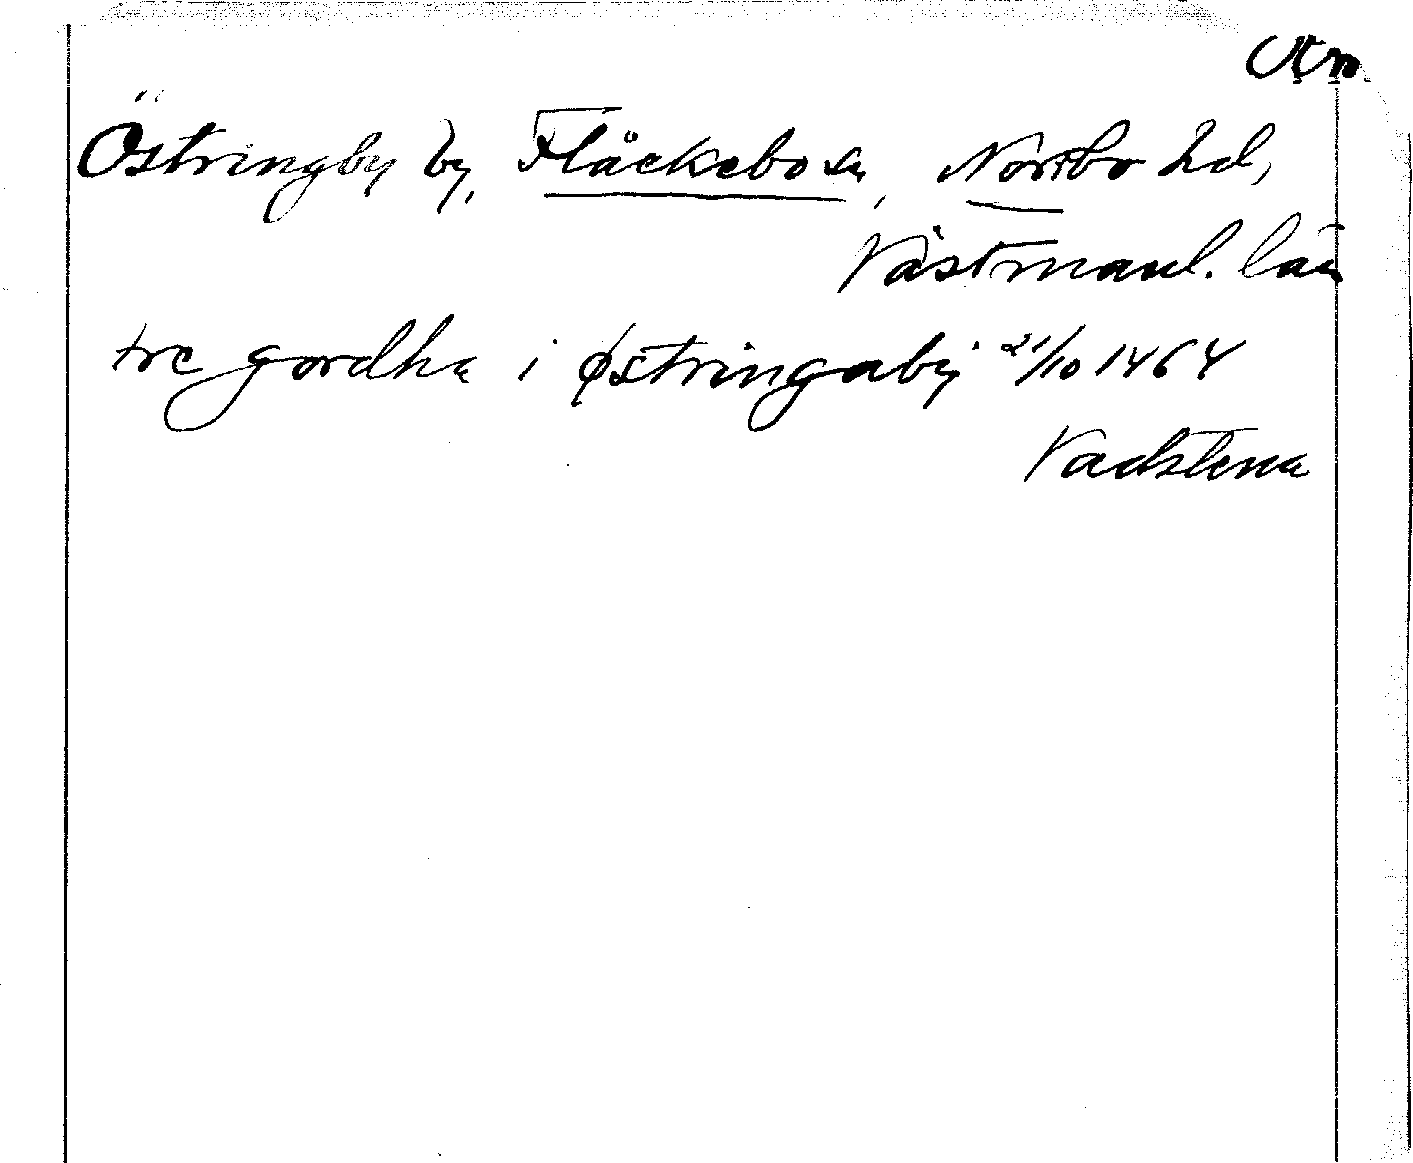 Utm
Östringby by, Fläckebo sn, Norrbo hd,
Västmanl. län
tre gordha i østringaby 21/10 1464
Vadstena